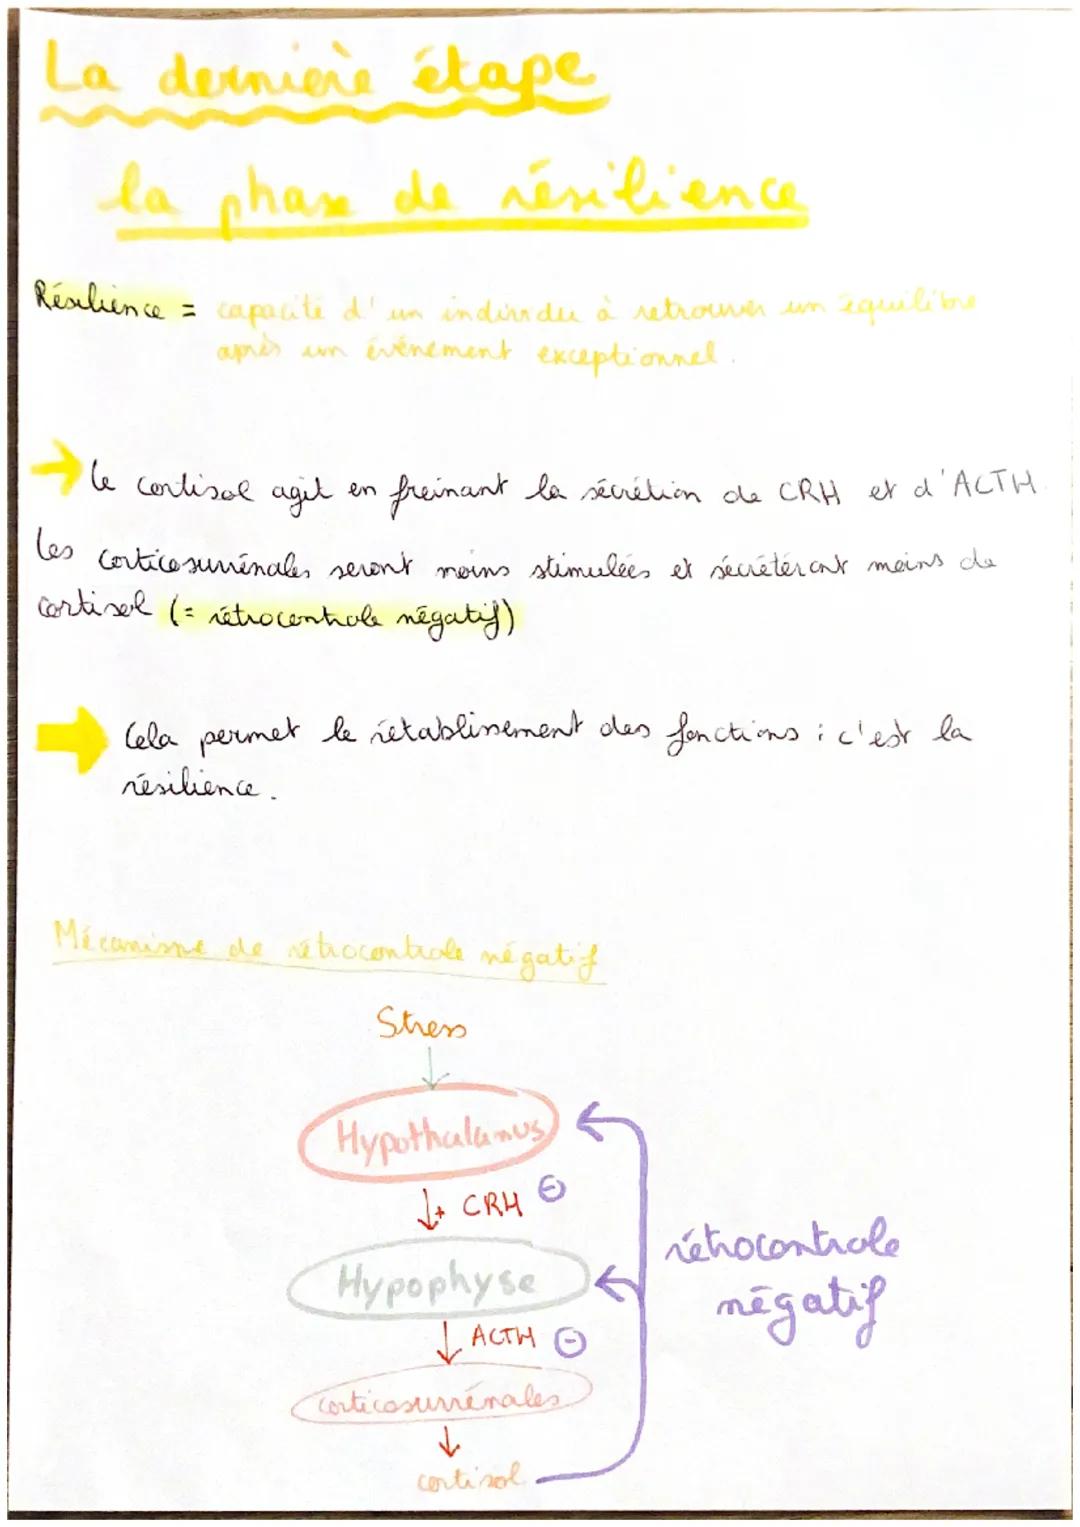 La dernière étape
la phase de résilience
Résilience = capacité d'un individu à retrouver un équilibre
après un événement exceptionnel.
Le cortisol agit en freinant la sécrétion de CRH et d'ACTH.
Les corticosurrénales seront moins stimulées et sécréteront moins de
cortisol (= rétrocontrole négatif)
Cela permet le rétablissement des fonctions : c'est la
résilience.
Mécanisme de rétrocontrole négatif
Stress
Hypothalamus
+ CRH ⊖
Hypophyse
rétrocontrole
négatif
ACTH ⊖
corticosurrénales
cortisol